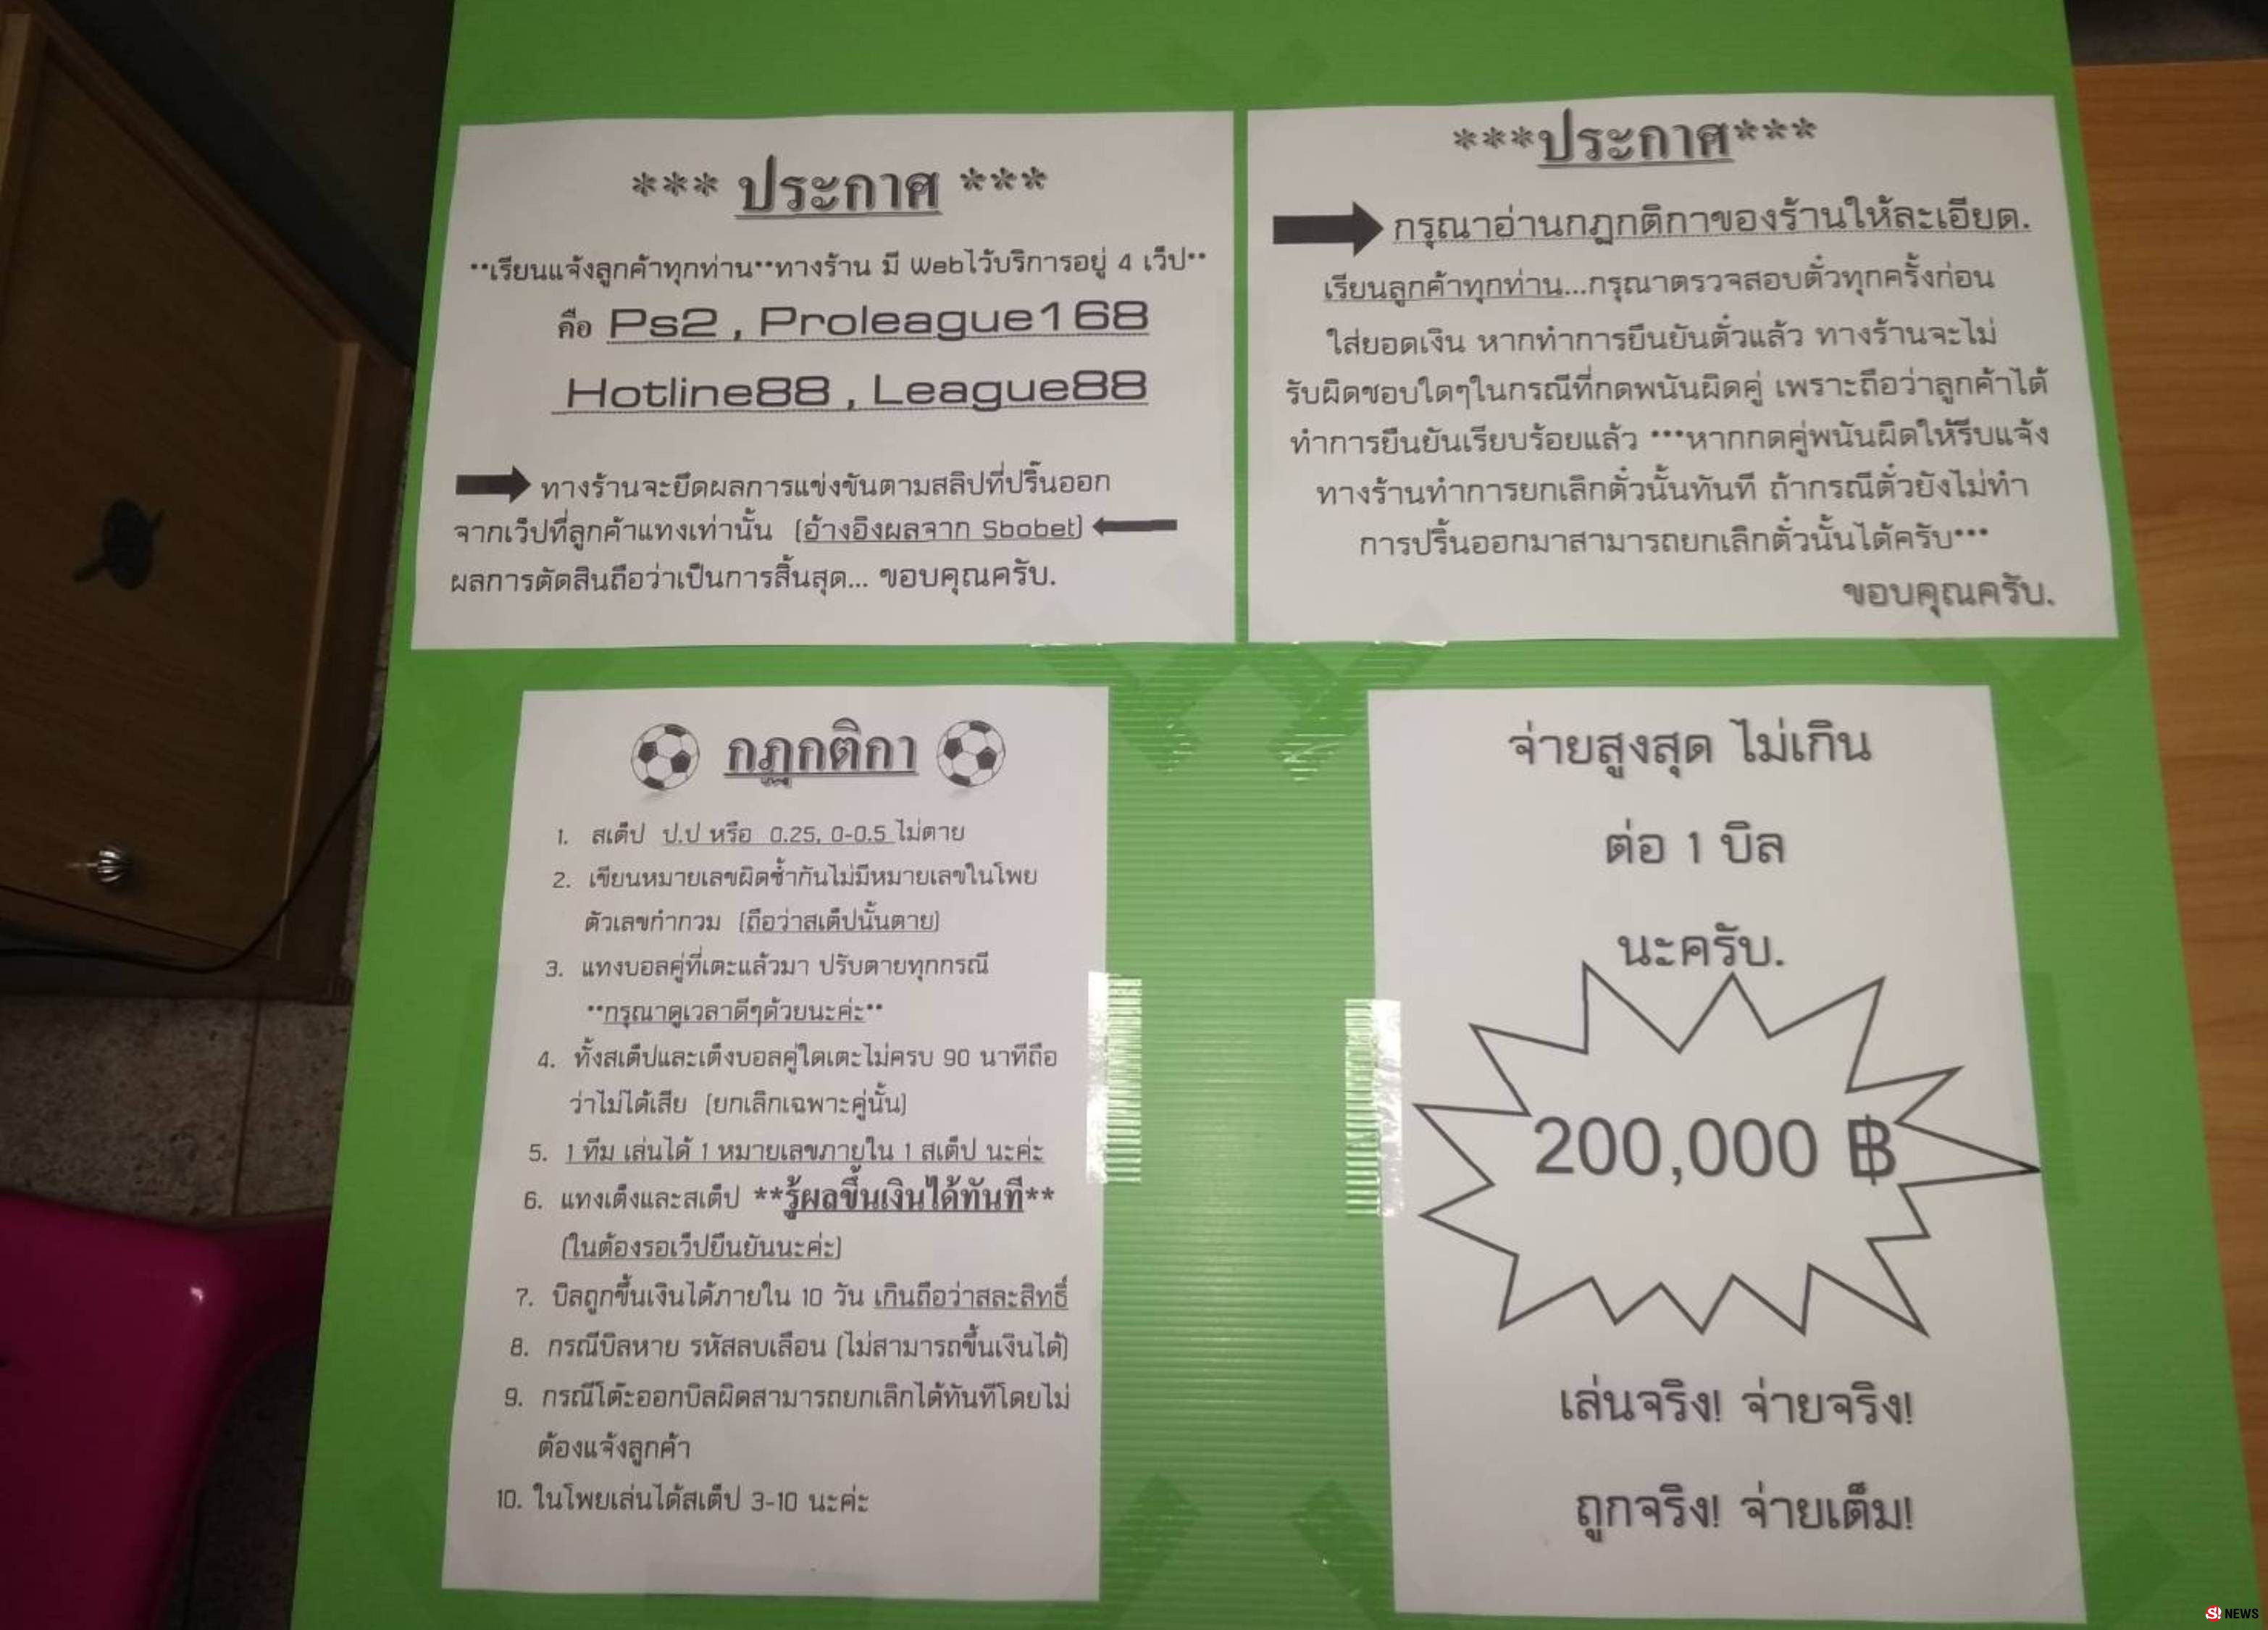 *** ประกาศ ***
**เรียนแจ้งลูกค้าทุกท่าน**ทางร้าน มี Webไว้บริการอยู่ 4 เว็ป**
คือ Ps2 , Proleague168
Hotline88 , League88
ทางร้านจะยึดผลการแข่งขันตามสลิปที่ปริ้นออก
จากเว็ปที่ลูกค้าแทงเท่านั้น (อ้างอิงผลจาก Sbobet)
ผลการตัดสินถือว่าเป็นการสิ้นสุด... ขอบคุณครับ.
***ประกาศ***
กรุณาอ่านกฏกติกาของร้านให้ละเอียด.
เรียนลูกค้าทุกท่าน...กรุณาตรวจสอบตั๋วทุกครั้งก่อน
ใส่ยอดเงิน หากทำการยืนยันตั๋วแล้ว ทางร้านจะไม่
รับผิดชอบใดๆในกรณีที่กดพนันผิดคู่ เพราะถือว่าลูกค้าได้
ทำการยืนยันเรียบร้อยแล้ว ***หากกดคู่พนันผิดให้รีบแจ้ง
ทางร้านทำการยกเลิกตั๋วนั้นทันที ถ้ากรณีตั๋วยังไม่ทำ
การปริ้นออกมาสามารถยกเลิกตั๋วนั้นได้ครับ***
ขอบคุณครับ.
กฏกติกา
1. สเต็ป ป.ป หรือ 0.25, 0-0.5 ไม่ตาย
2. เขียนหมายเลขผิดซ้ำกันไม่มีหมายเลขในโพย
ตัวเลขกำกวม (ถือว่าสเต็ปนั้นตาย)
3. แทงบอลคู่ที่เตะแล้วมา ปรับตายทุกกรณี
**กรุณาดูเวลาดีๆด้วยนะค่ะ**
4. ทั้งสเต็ปและเต็งบอลคู่ใดเตะไม่ครบ 90 นาทีถือ
ว่าไม่ได้เสีย (ยกเลิกเฉพาะคู่นั้น)
5. 1 ทีม เล่นได้ 1 หมายเลขภายใน 1 สเต็ป นะค่ะ
6. แทงเต็งและสเต็ป **รู้ผลขึ้นเงินได้ทันที**
(ในต้องรอเว็ปยืนยันนะค่ะ)
7. บิลถูกขึ้นเงินได้ภายใน 10 วัน เกินถือว่าสละสิทธิ์
8. กรณีบิลหาย รหัสลบเลือน (ไม่สามารถขึ้นเงินได้)
9. กรณีโต๊ะออกบิลผิดสามารถยกเลิกได้ทันทีโดยไม่
ต้องแจ้งลูกค้า
10. ในโพยเล่นได้สเต็ป 3-10 นะค่ะ
จ่ายสูงสุด ไม่เกิน
ต่อ 1 บิล
นะครับ.
200,000 ฿
เล่นจริง! จ่ายจริง!
ถูกจริง! จ่ายเต็ม!
S! NEWS